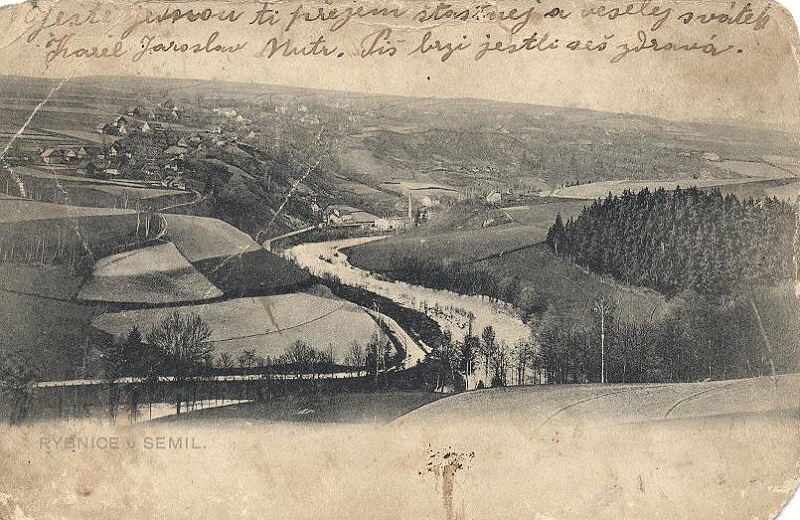 Ještě jednou ti přejem šťastnej a veselej svátek
Karel Jaroslav Mutr. Piš brzi jestli seš zdravá.
RYBNICE u SEMIL.